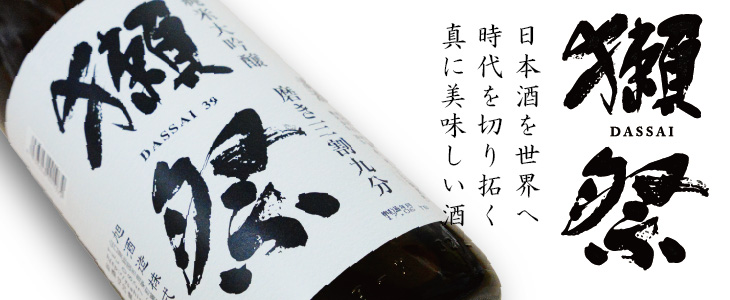 獺
DASSAI
祭
日本酒を世界へ
時代を切り拓く
真に美味しい酒
獺
祭
DASSAI 39
純米大吟醸
磨き三割九分
旭酒造株式